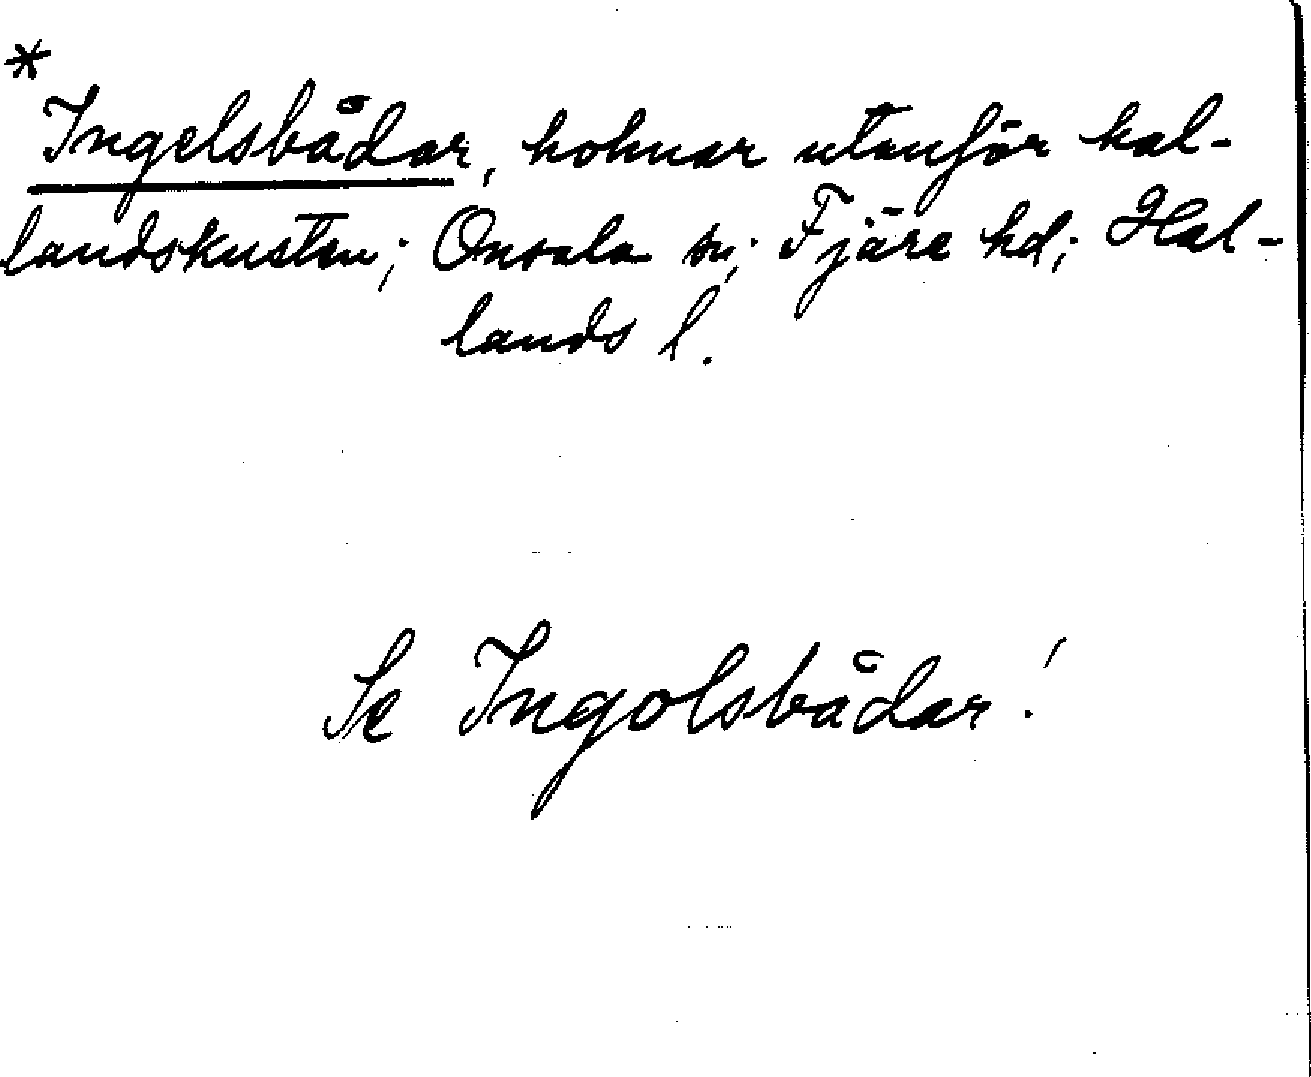 *
Ingelsbådar, holmar utanför hal-
landskusten; Onsala sn; Fjäre hd; Hal-
lands l.
Se Ingolsbådar!